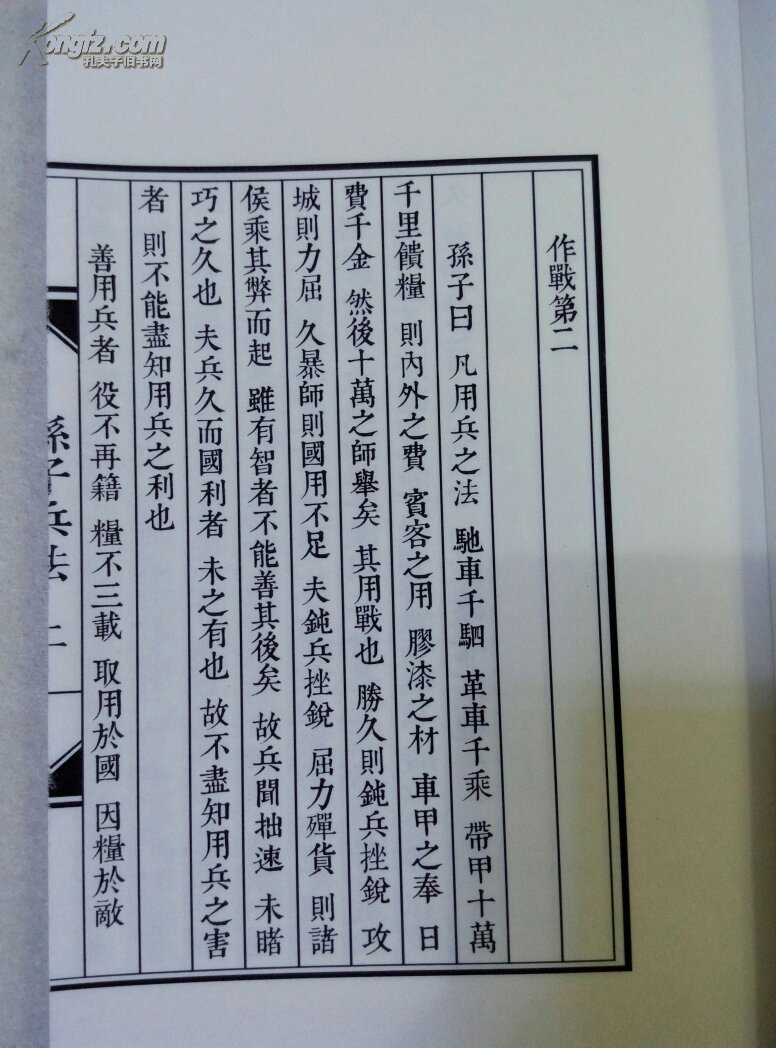 Kongfz.com
孔夫子旧书网
作戰第二
孫子曰 凡用兵之法 馳車千駟 革車千乘 帶甲十萬
千里饋糧 則內外之費 賓客之用 膠漆之材 車甲之奉 日
費千金 然後十萬之師舉矣 其用戰也 勝久則鈍兵挫銳 攻
城則力屈 久暴師則國用不足 夫鈍兵挫銳 屈力殫貨 則諸
侯乘其弊而起 雖有智者不能善其後矣 故兵聞拙速 未睹
巧之久也 夫兵久而國利者 未之有也 故不盡知用兵之害
者 則不能盡知用兵之利也
善用兵者 役不再籍 糧不三載 取用於國 因糧於敵
孫子兵法 上